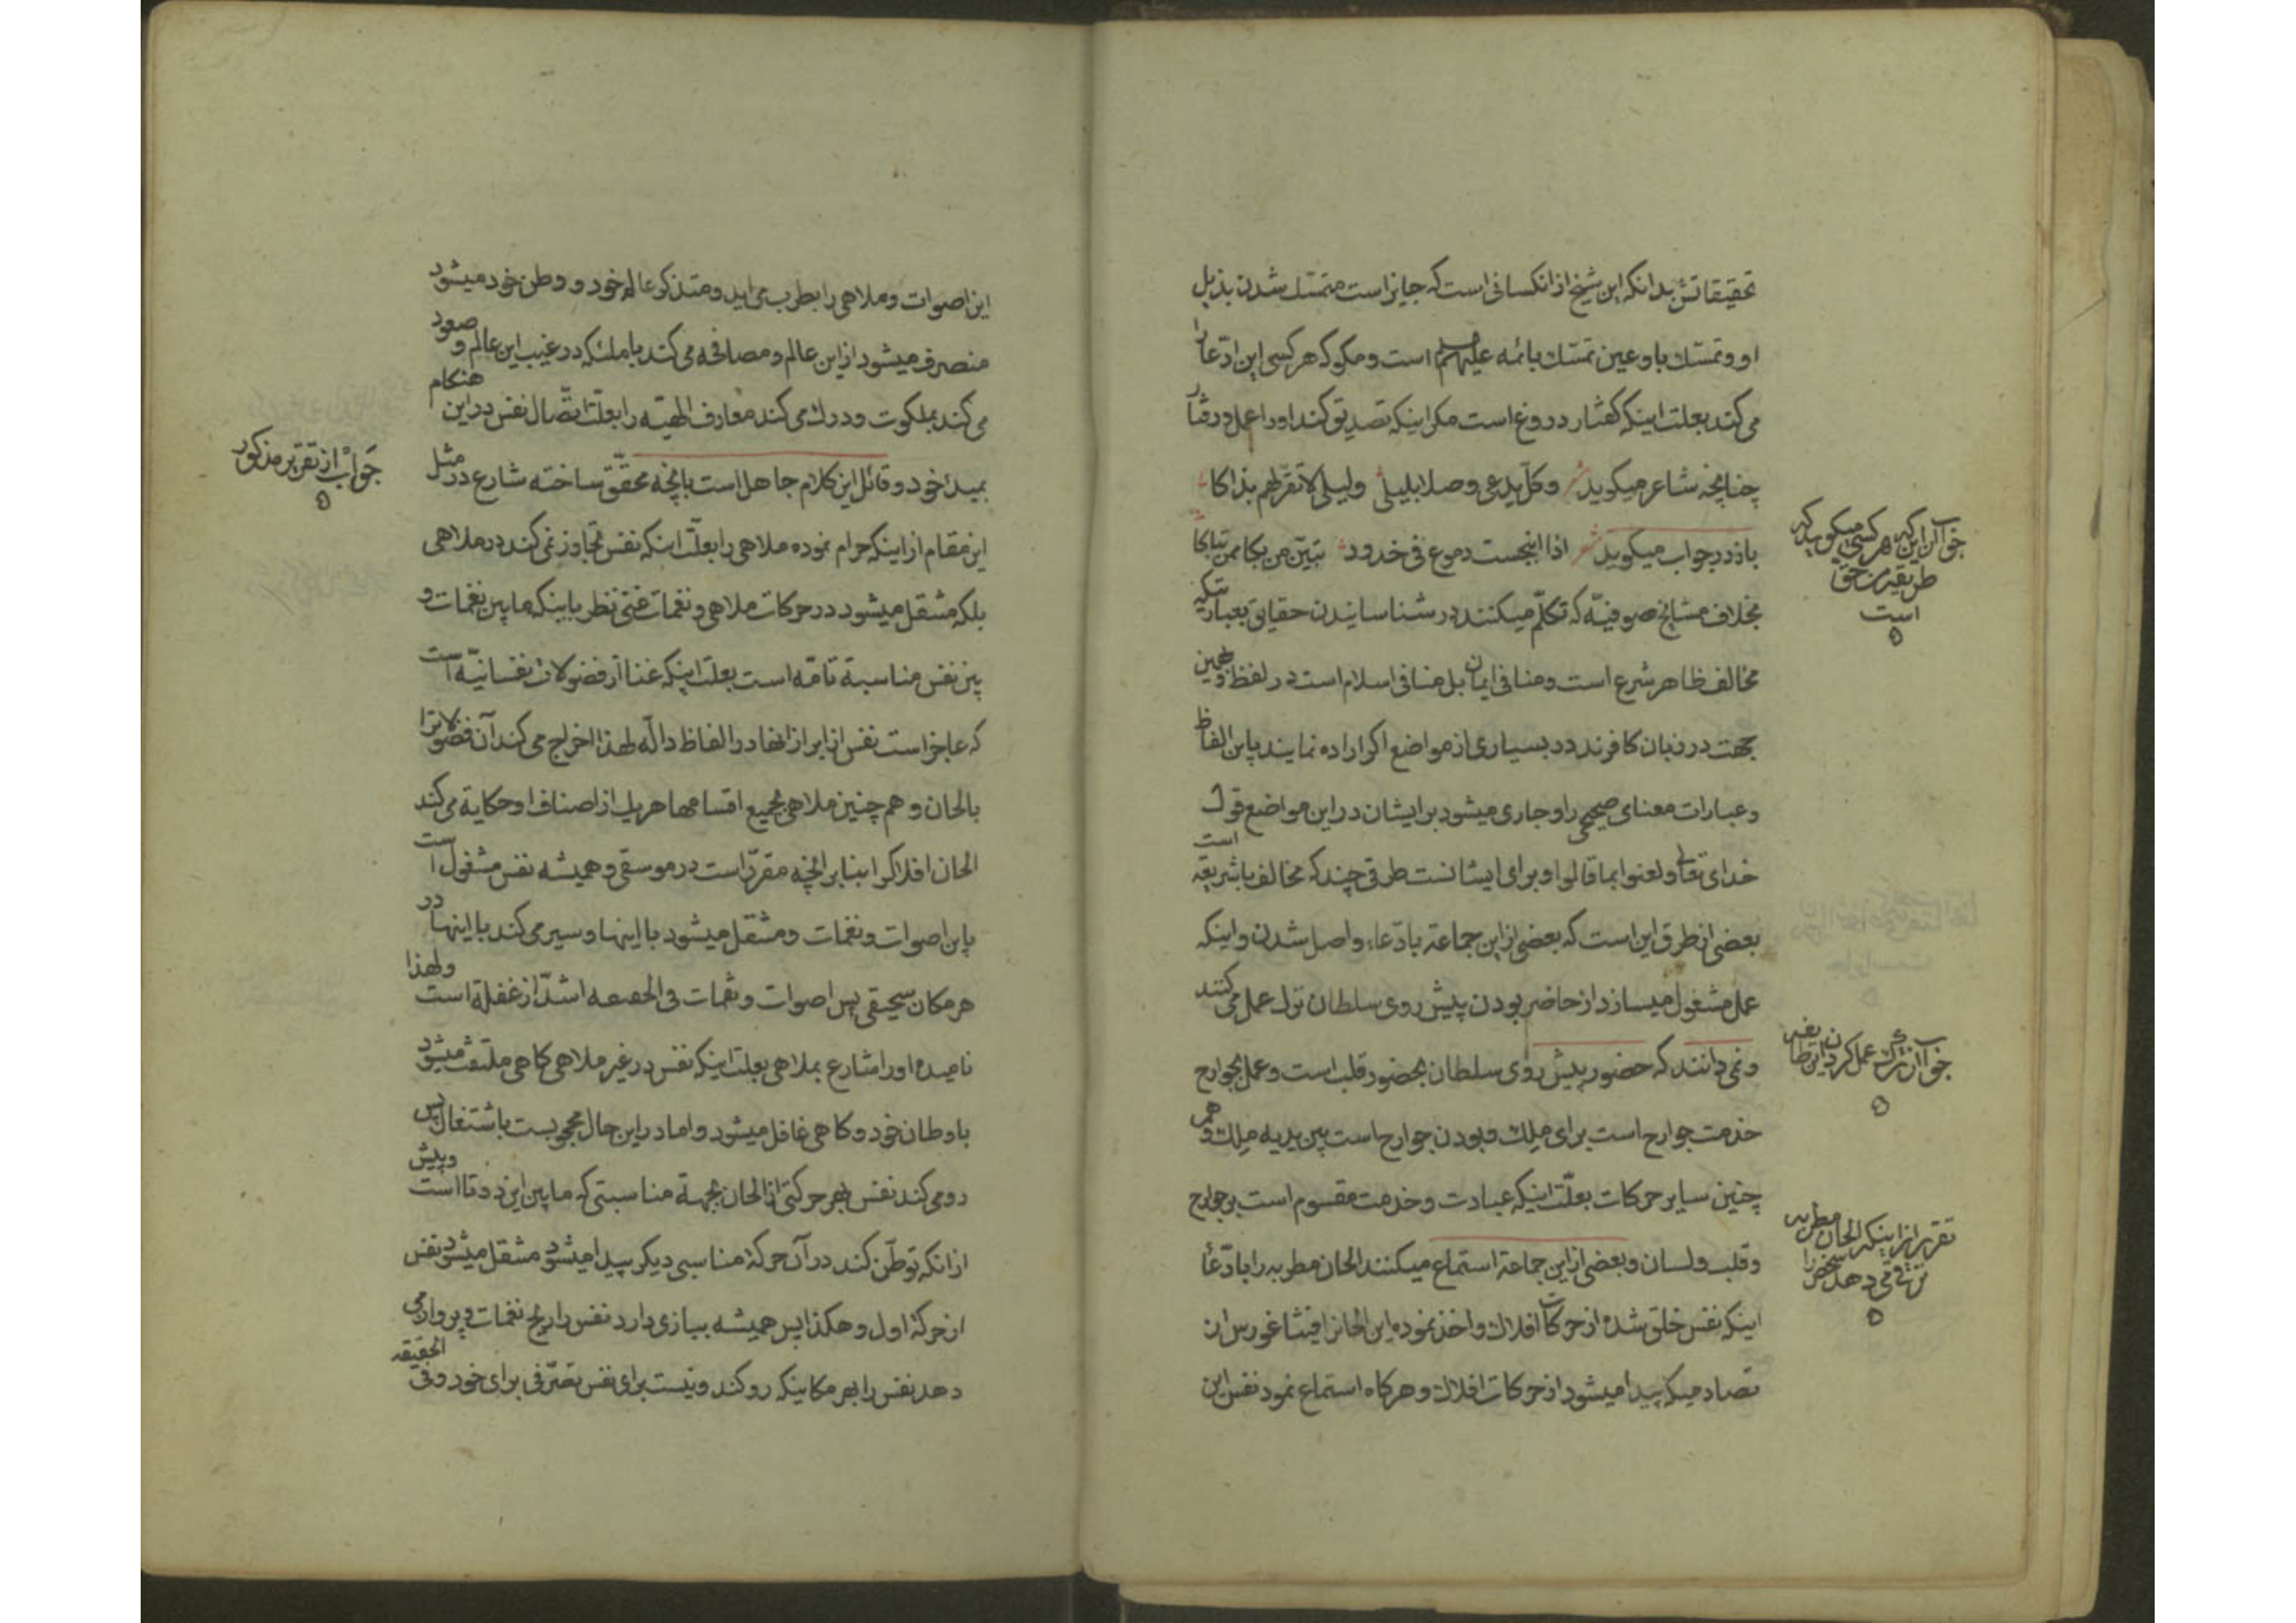 تحقیقاتش بدانکه این شیخ از انکسانی است که جایز است متمسک شدن بذیل
او و تمسّک باو عین تمسّک بائمه علیهم است و مکو که هر کسی این ادّعا را
می کند بعلت اینکه کفتار دروغ است مکر اینکه تصدیق کند او را عمل و رفتار
چنانچه شاعر میکوید شعر وکلّ یدعی وصلا بلیلی ولیلی لا تقرّ لهم بذاکا
باز در جواب میکوید شعر اذا انبجست دموع فی خدود تبیّن من بکا ممن تباکا
بخلاف مشایخ صوفیّه که تکلّم میکنند در شناسانیدن حقایق بعباراتیکه
مخالف ظاهر شرع است و منافی ایمان بل منافی اسلام است در لفظ و همین
جهت در زبان کافرند در بسیاری از مواضع اکر اراده نمایند باین الفاظ
و عبارات معنای صحیحی را و جاری میشود بر ایشان در این مواضع قول
خدای تعالی ولعنوا بما قالوا و برای ایشانست طرقی چند که مخالف با شریعة است
بعضی از طرق این است که بعضی از این جماعة بادّعاء واصل شدن و اینکه
عمل مشغول میسازد از حاضر بودن پیش روی سلطان ترک عمل می کنند
و نمی دانند که حضور پیش روی سلطان بحضور قلب است و عمل بجوارح
خدمت جوارح است برای ملک و بودن جوارح است بین یدیه ملک و هم
چنین سایر حرکات بعلّت اینکه عبادت و خدمت مقسوم است بر جوارح
و قلب و لسان و بعضی از این جماعة استماع میکنند الحان مطربه را بادّعا
اینکه نفس خلق شده از حرکات افلاک و اخذ نموده این الحانرا فیثاغورس از
تصادمیکه پیدا میشود از حرکات افلاک و هرکاه استماع نمود نفس این
جواب از این که هر کسی میکوید که
طریقه من حق
است
جواب از ترک عمل کردن این طایفه
تقریر از اینکه الحان مطربه
ترقی می دهد شخص را
این اصوات و ملاهی را بطرب می اید و متذکر عالم خود و وطن خود میشود
منصرف میشود از این عالم و مصافحه می کند با ملئکه در غیب این عالم و صعود
می کند بملکوت و درک می کند معارف الهیّه را بعلّت اتّصال نفس در این هنکام
بمبداء خود و قائل این کلام جاهل است بانچه محقّق ساخته شارع در مثل
این مقام از اینکه حرام نموده ملاهی را بعلّت اینکه نفس تجاوز نمی کند در ملاهی
بلکه مشتغل میشود در حرکات ملاهی و نغمات غنی نظر باینکه ما بین نغمات و
بین نفس مناسبة تامّه است بعلت اینکه غنا از فضولات نفسانیّه است
که عاجز است نفس از ابراز انها در الفاظ دالّه لهذا اخراج می کند آن فضولاترا
بالحان و هم چنین ملاهی بجمیع اقسامها هریک از اصناف او حکایة می کند
الحان افلاکرا بنابر انچه مقرّر است در موسقی و همیشه نفس مشغول است
باین اصوات و نغمات و مشتغل میشود با اینها و سیر می کند با اینها در
هر مکان سحیقی پس اصوات و نغمات فی الحقیقه اشدّ از غفلة است ولهذا
نامیده او را شارع بملاهی بعلت اینکه نفس در غیر ملاهی کاهی ملتفت میشود
باوطان خود و کاهی غافل میشود و اما در این حال محجوبست باشتغال پس
رو می کند نفس بهر حرکتی از الحان بجهة مناسبتی که ما بین این دوتا است و پیش
از انکه توطّن کند در آن حرکة مناسبی دیکر پیدا میشود مشتغل میشود نفس
از حرکة اول و هکذا پس همیشه ببازی دارد نفس را ریح نغمات و پرواز می
دهد نفس را بهر مکانیکه رو کند و نیست برای نفس تصرّفی برای خود و فی الحقیقه
جواب از تقریر مذکور